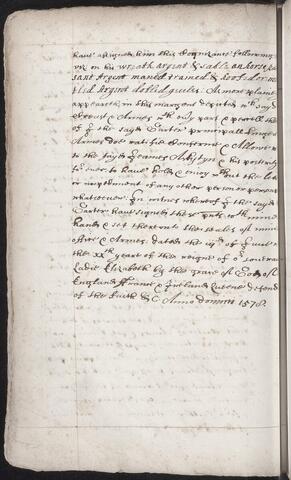 have assigned him this Cognizance following
viz on his wreath argent & sable on horse pas
sant Argent maned trained & hoofed or
Argent gules: As more plaine
appeareth in this margent depicted wch sayd
Creast & Armes & every part & parcell there
of I the sayd Garter principall kinge of
Armes doe ratifie Confirme & Allowe
to the sayd James & his posteritie
for ever to have hold & enjoy wthout the let
or of any other person or persons
whatsoever. In witnes whereof I the sayd
Garter have signed these with mine
hand & set thereunto the seales of mine
office & Armes. Dated the of June
the xxth yeare of the reigne of or soveraigne
Ladie Elizabeth by the grace of God of
England France & Ireland Queene defend
of the faith &c Anno domini 1578.